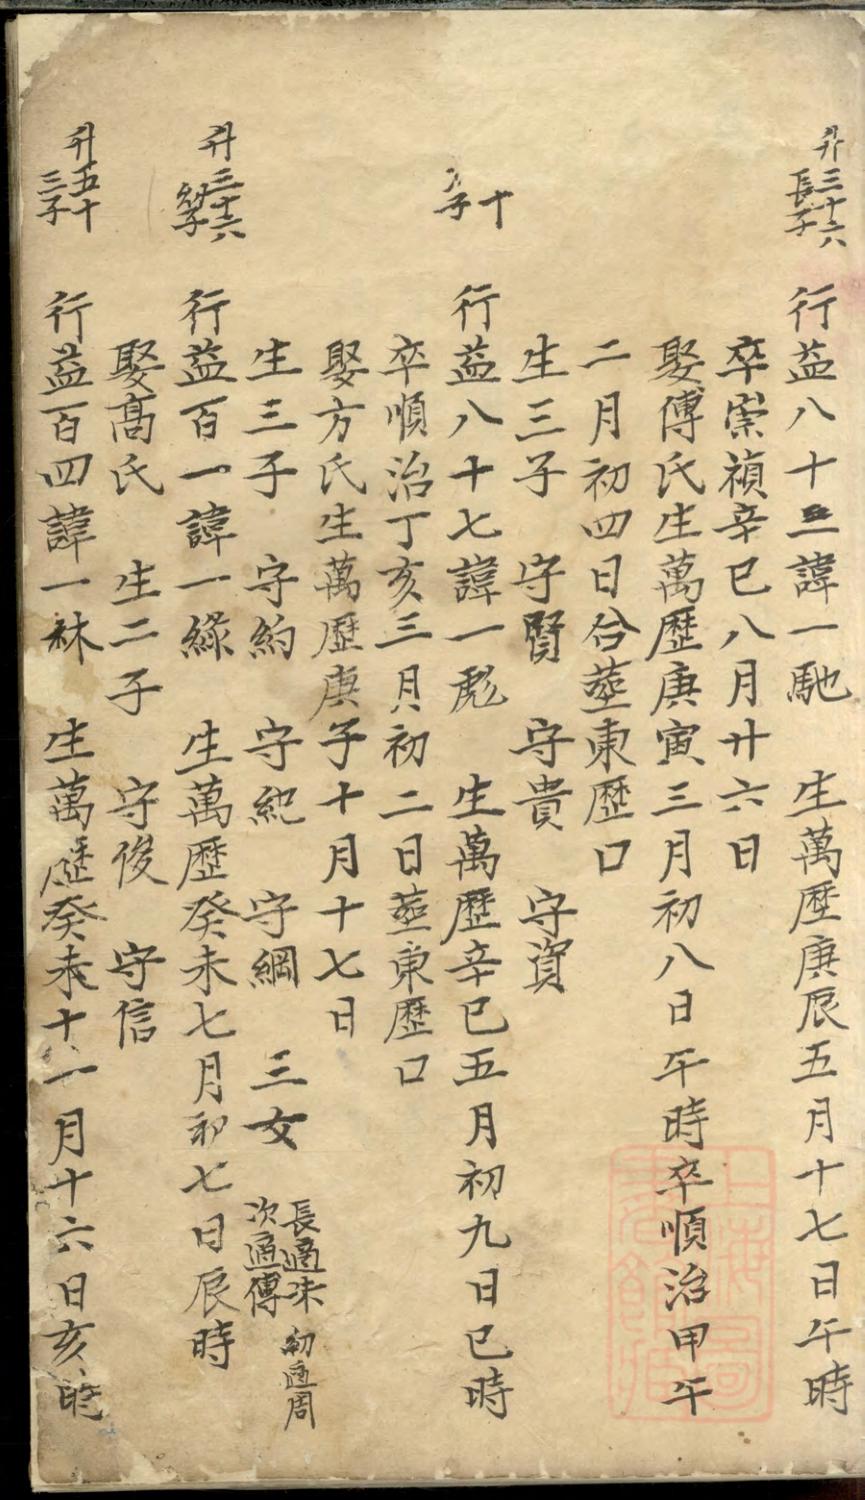 升三十六
長子
行益八十三諱一馳 生萬歷庚辰五月十七日午時
卒崇禎辛巳八月廿六日
娶傅氏生萬歷庚寅三月初八日午時卒順治甲午
二月初四日合塟東歷口
生三子 守賢 守貴 守資
十
子
行益八十七諱一彪 生萬歷辛巳五月初九日巳時
卒順治丁亥三月初二日塟東歷口
娶方氏生萬歷庚子十月十七日
生三子 守約 守紀 守綱 三女 長適 次適傅 幼適周
升三十六
幼子
行益百一諱一綠 生萬歷癸未七月初七日辰時
娶髙氏 生二子 守俊 守信
升五十
三子
行益百四諱一 生萬歷癸未十一月十六日亥時